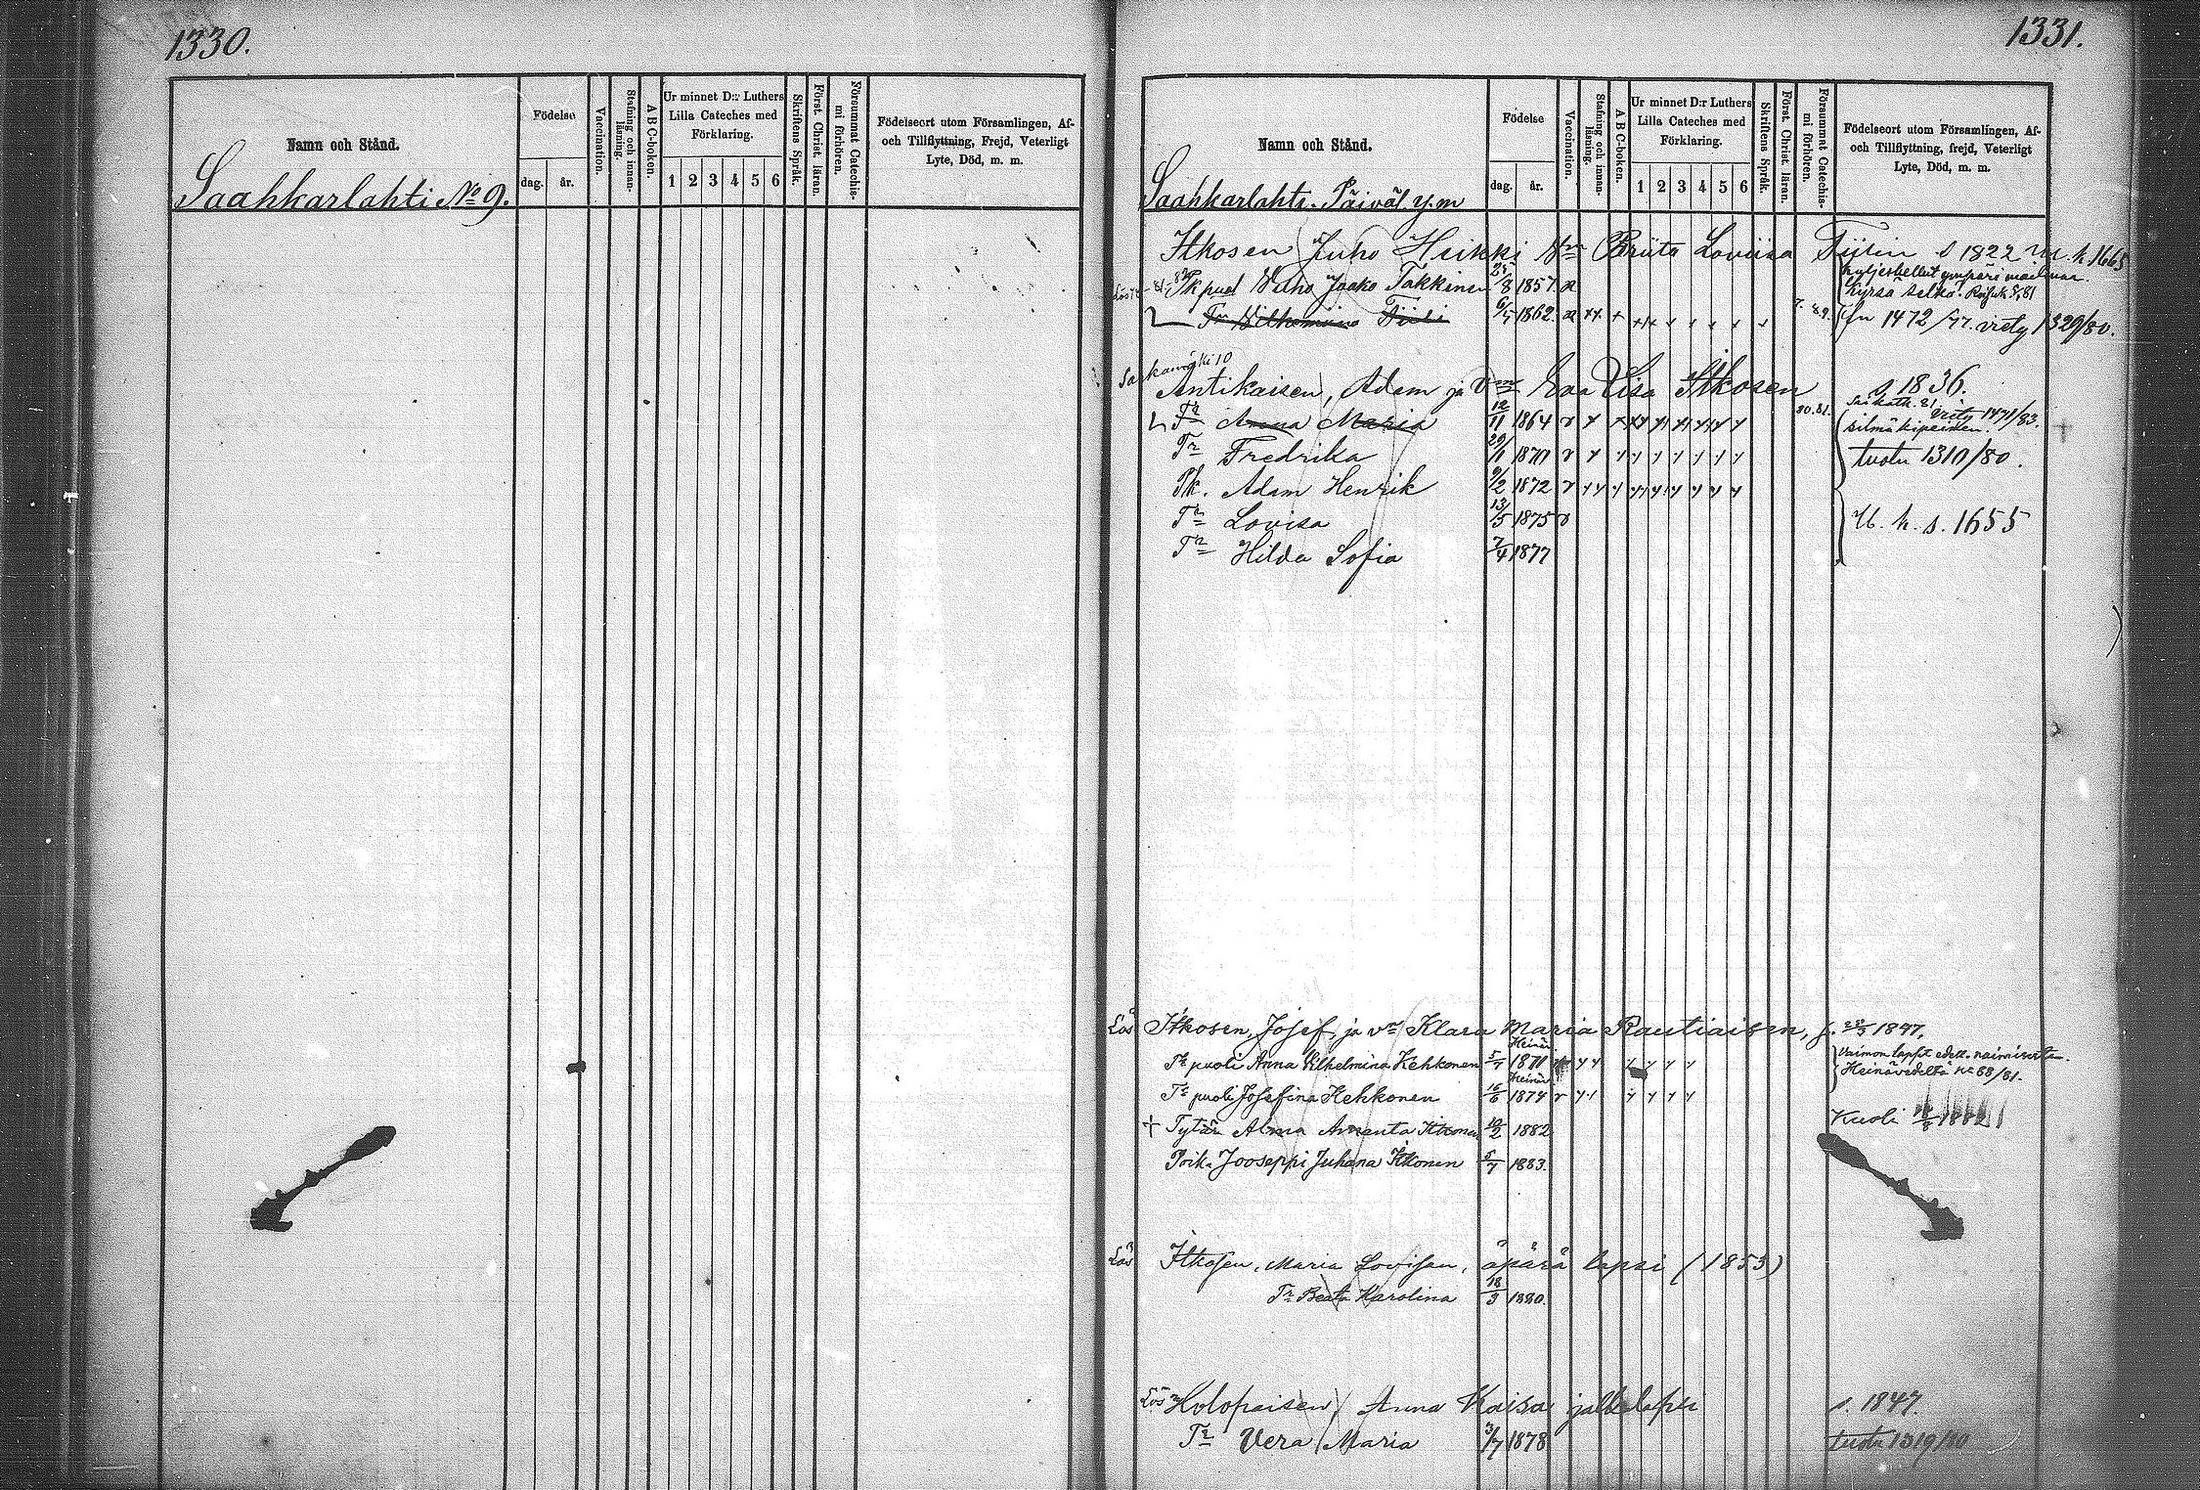 1330.
Namn och Stånd.
Födelse
dag.
år.
Vaccination.
Stafning och innan-
läsning.
A B C-boken.
Ur minnet D:r Luthers
Lilla Cateches med
Förklaring.
1 2 3 4 5 6
Skriftens Språk.
Först. Christ. läran.
Försummat Catechis-
mi förhören.
Födelseort utom Församlingen, Af-
och Tillflyttning, Frejd, Veterligt
Lyte, Död, m. m.
Saahkarlahti No 9.
1331.
Namn och Stånd.
Födelse
dag.
år.
Vaccination.
Stafning och innan-
läsning.
A B C-boken.
Ur minnet D:r Luthers
Lilla Cateches med
Förklaring.
1 2 3 4 5 6
Skriftens Språk.
Först. Christ. läran.
Försummat Catechis-
mi förhören.
Födelseort utom Församlingen, Af-
och Tillflyttning, frejd, Veterligt
Lyte, Död, m. m.
Saahkarlahti. Päiväl. y.m
Itkosen Juho Heikki Vm Briita Loviisa Tiilin s 1822 1665
Pk puol Wilho Jaako Takkinen 8 1857
Tr Vilhemiina Tiili 1862 1472/77. 1329/80.
Antikaisen, Adam ja Vm Eva Lisa Itkosen s 1836.
Tr Anna Maria 12/11 1864 80.81. 1471/83.
Tr Fredrika 29/1 1870 tuotu 1310/80.
Pk. Adam Henrik 9/2 1872
Tr Lovisa 13/5 1875 s. 1655
Tr Hilda Sofia 7/4 1877
Lös Itkosen, Josef, ja vm Klara Maria Rautiaisen, 1847,
Tr puoli Anna Vilhelmina Kehkonen 5/7 1871 Heinäv Vaimon lapset edell. naimisesta.
Heinävedeltä No 68/81.
Tr puoli Josefina Kehkonen 16/6 1874 Heinäv
+ Tytär Alma Amanta Itkonen 10/2 1882 Kuoli
Poika Jooseppi Juhana Itkonen 5/7 1883.
Lös Itkosen, Maria Lovisan, äpärä lapsi (1853)
Tr Beata Karolina 18/3 1880.
Lös Holopaisen, Anna Kaisa s. 1847.
Tr Vera Maria 3/7 1878 tuotu 1319/80